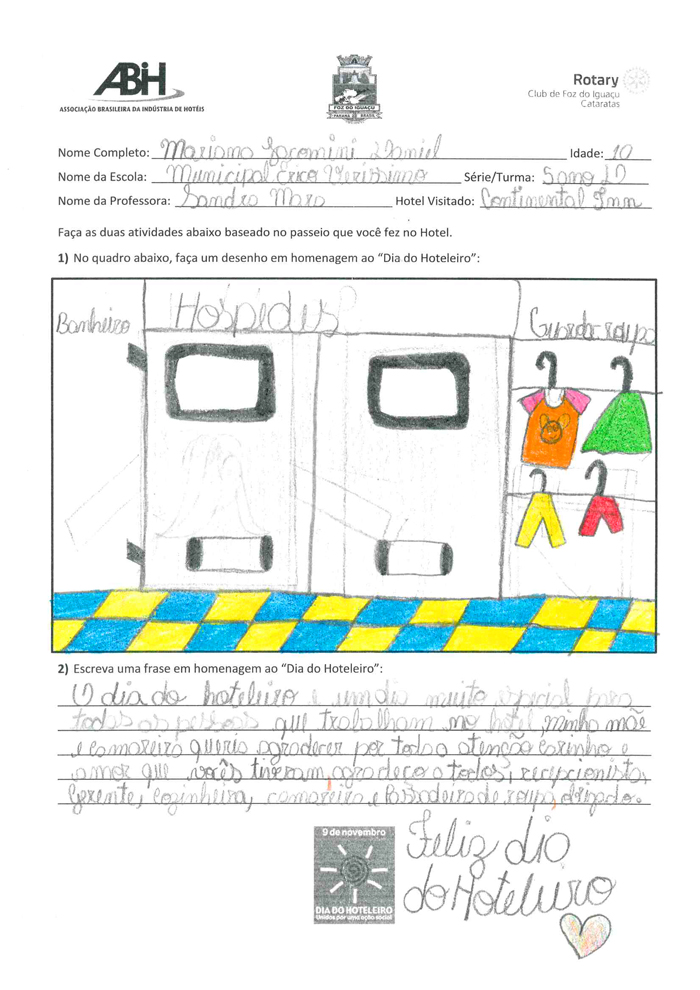 ABIH
ASSOCIAÇÃO BRASILEIRA DA INDÚSTRIA DE HOTÉIS
FOZ DO IGUAÇU
PARANÁ BRASIL
Rotary
Club de Foz do Iguaçu
Cataratas
Nome Completo: Mariana Jacomini Daniel Idade: 10
Nome da Escola: Municipal Érico Veríssimo Série/Turma: 5ano D
Nome da Professora: Sandra Mara Hotel Visitado: Continental Inn
Faça as duas atividades abaixo baseado no passeio que você fez no Hotel.
1) No quadro abaixo, faça um desenho em homenagem ao “Dia do Hoteleiro”:
Banheiro Hospedes Guarda roupa
2) Escreva uma frase em homenagem ao “Dia do Hoteleiro”:
O dia do hoteleiro e um dia muito especial para
todas as pessoas que trabalham no hotel, minha mãe
e camareira queria agradecer por toda a atenção carinho e
amor que vocês tiveram, agradeço a todos, recepcionista,
Gerente, Cozinheira, camareira, e Passadeira de roupa, obrigada.
9 de novembro
DIA DO HOTELEIRO
Unidos por uma ação social
Feliz dia
do Hoteleiro